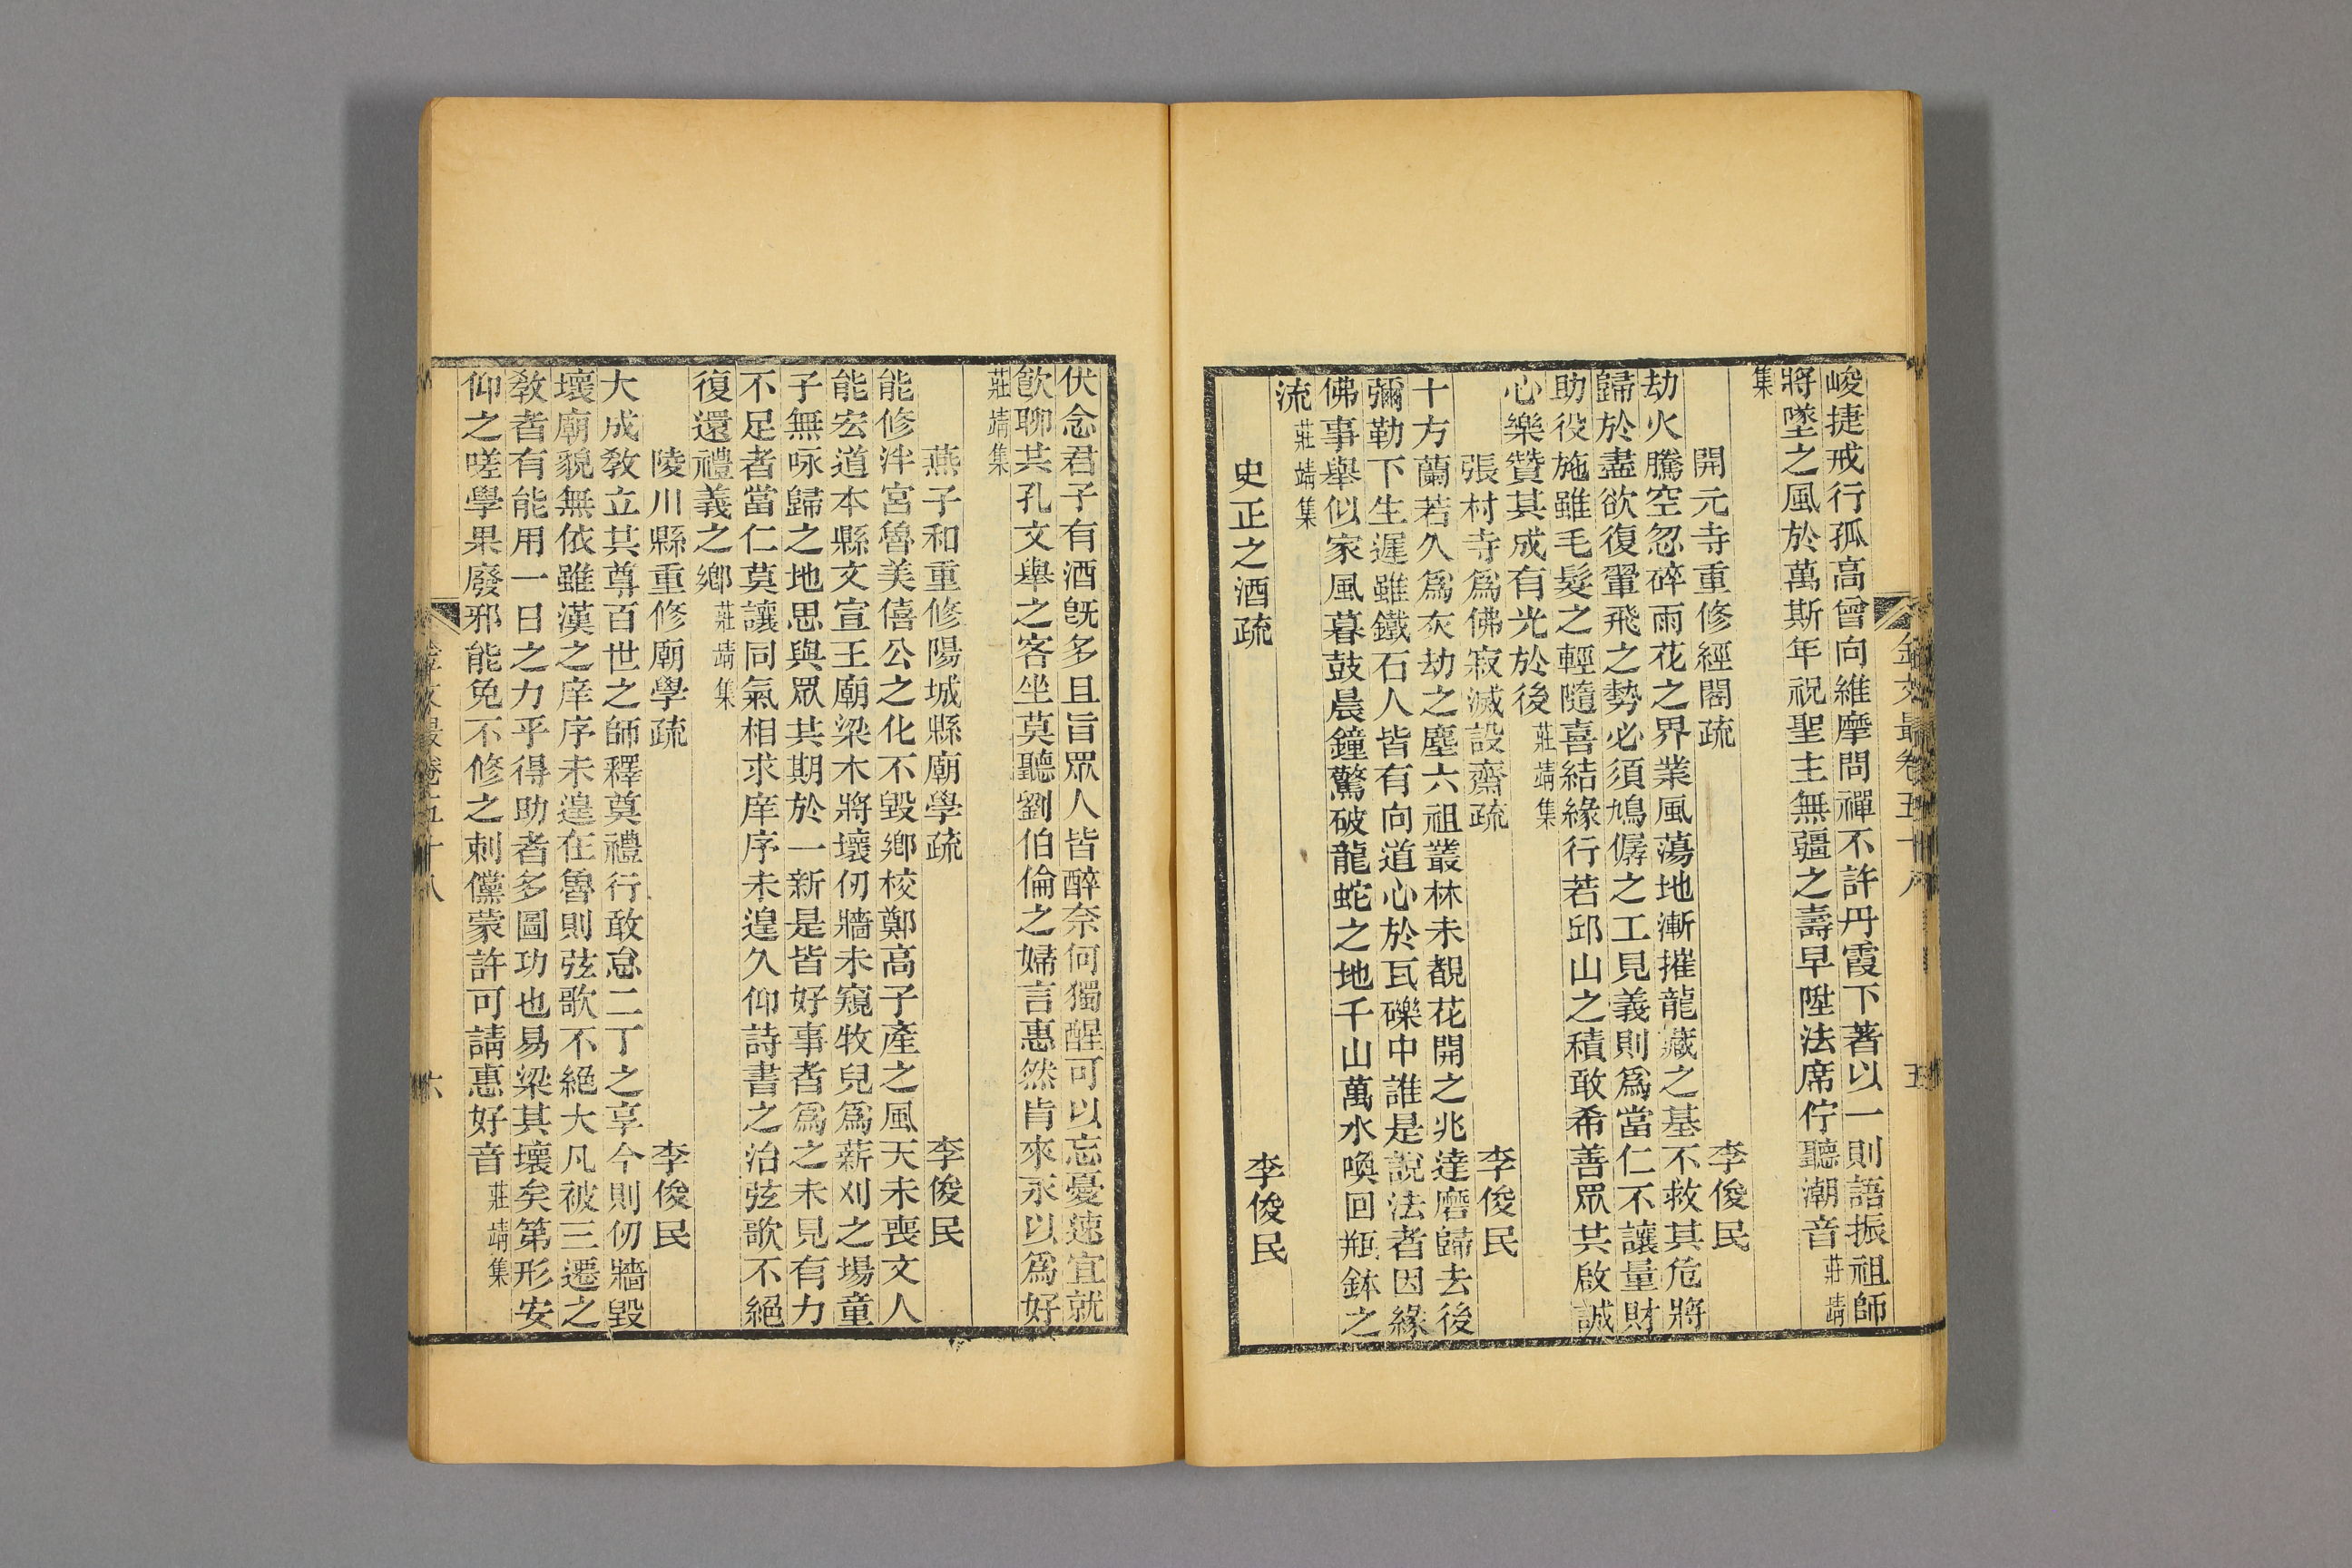 峻捷戒行孤高曾向維摩問禪不許丹霞下著以一則語振祖師
將墜之風於萬斯年祝聖主無疆之壽早陞法席佇聽潮音莊靖
集
開元寺重修經閣疏 李俊民
劫火騰空忽碎雨花之界業風蕩地漸摧龍藏之基不救其危將
歸於盡欲復翬飛之勢必須鳩僝之工見義則爲當仁不讓量財
助役施雖毛髮之輕隨喜結緣行若邱山之積敢希善眾共啟誠
心樂贊其成有光於後莊靖集
張村寺爲佛寂滅設齋疏 李俊民
十方蘭若久爲灰劫之塵六祖叢林未覩花開之兆達磨歸去後
彌勒下生遲雖鐵石人皆有向道心於瓦礫中誰是說法者因緣
佛事舉似家風暮鼓晨鐘驚破龍蛇之地千山萬水喚回瓶鉢之
流莊靖集
史正之酒疏 李俊民
金文最卷五十八 五
伏念君子有酒旣多且旨眾人皆醉奈何獨醒可以忘憂速宜就
飲聊共孔文舉之客坐莫聽劉伯倫之婦言惠然肯來永以爲好
莊靖集
燕子和重修陽城縣廟學疏 李俊民
能修泮宮魯美僖公之化不毀鄉校鄭高子產之風天未喪文人
能宏道本縣文宣王廟梁木將壞仞牆未窺牧兒爲薪刈之場童
子無咏歸之地思與眾共期於一新是皆好事者爲之未見有力
不足者當仁莫讓同氣相求庠序未遑久仰詩書之治弦歌不絕
復還禮義之鄉莊靖集
陵川縣重修廟學疏 李俊民
大成敎立其尊百世之師釋奠禮行敢怠二丁之享今則仞牆毀
壞廟貌無依雖漢之庠序未遑在魯則弦歌不絕大凡被三遷之
敎者有能用一日之力乎得助者多圖功也易梁其壞矣第形安
仰之嗟學果廢邪能免不修之刺儻蒙許可請惠好音莊靖集
金文最卷五十八 六